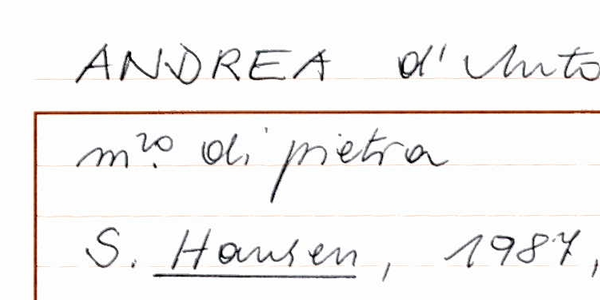 ANDREA d'Anto
m.ro di pietra
S. Hansen, 1987,